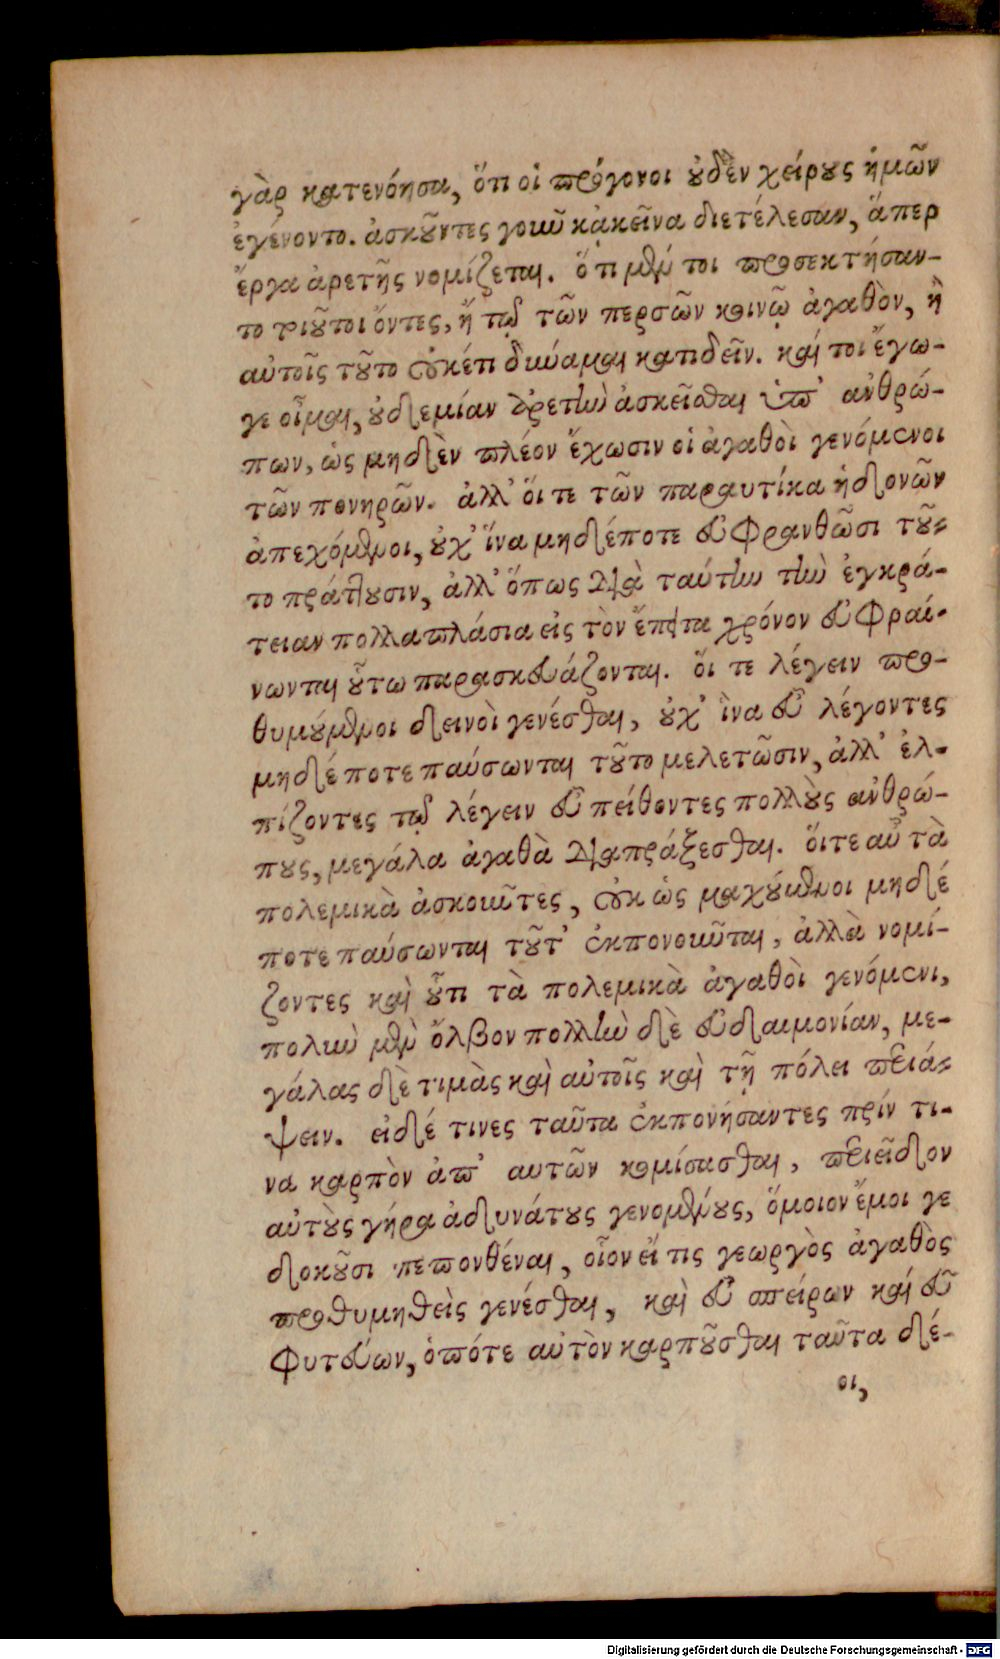 γὰρ κατενόησα, ὅτι οἱ πρόγονοι οὐδὲν χείρους ἡμῶν
ἐγένοντο. ἀσκοῦντες γοῦν κᾀκεῖνα διετέλεσαν, ἅπερ
ἔργα ἀρετῆς νομίζεται. ὅτι μέν τοι προσεκτήσαν-
το τοιοῦτοι ὄντες, ἢ τῷ τῶν περσῶν κοινῷ ἀγαθὸν, ἢ
αὐτοῖς τοῦτο οὐκέτι δύναμαι κατιδεῖν. καί τοι ἔγω-
γε οἶμαι, οὐδεμίαν ἀρετὴν ἀσκεῖσθαι ὑπ' ἀνθρώ-
πων, ὡς μηδὲν πλέον ἔχωσιν οἱ ἀγαθοὶ γενόμενοι
τῶν πονηρῶν. ἀλλ' ὅι τε τῶν παραυτίκα ἡδονῶν
ἀπεχόμενοι, οὐχ' ἵνα μηδέποτε εὐφρανθῶσι τοῦ-
το πράττουσιν, ἀλλ' ὅπως διὰ ταύτην τὴν ἐγκρά-
τειαν πολλαπλάσια εἰς τὸν ἔπειτα χρόνον εὐφραί-
νωνται οὕτω παρασκευάζονται. ὅι τε λέγειν προ-
θυμούμενοι δεινοὶ γενέσθαι, οὐχ' ἵνα εὖ λέγοντες
μηδέποτε παύσωνται τοῦτο μελετῶσιν, ἀλλ' ἐλ-
πίζοντες τῷ λέγειν εὖ πείθοντες πολλοὺς ἀνθρώ-
πους, μεγάλα ἀγαθὰ διαπράξεσθαι. ὅιτε αὖ τὰ
πολεμικὰ ἀσκοῦντες, οὐκ ὡς μαχόμενοι μηδέ
ποτε παύσωνται τοῦτ' ἐκπονοῦνται, ἀλλὰ νομί-
ζοντες καὶ οὗτι τὰ πολεμικὰ ἀγαθοὶ γενόμενι,
πολὺν μὲν ὄλβον πολλὴν δὲ εὐδαιμονίαν, με-
γάλας δὲ τιμὰς καὶ αὐτοῖς καὶ τῇ πόλει περιά-
ψειν. εἰδέ τινες ταῦτα ἐκπονήσαντες πρίν τι-
να καρπὸν ἀπ' αυτῶν κομίσασθαι, περιεῖδον
αὐτοὺς γήρα ἀδυνάτους γενομένους, ὅμοιον ἔμοι γε
δοκοῦσι πεπονθέναι, οἷον εἴ τις γεωργὸς ἀγαθὸς
προθυμηθεὶς γενέσθαι, καὶ εὖ σπείρων καί εὖ
φυτεύων, ὁπότε αὐτὸν καρποῦσθαι ταῦτα δέ-
οι,
Digitalisierung gefördert durch die Deutsche Forschungsgemeinschaft - DFG